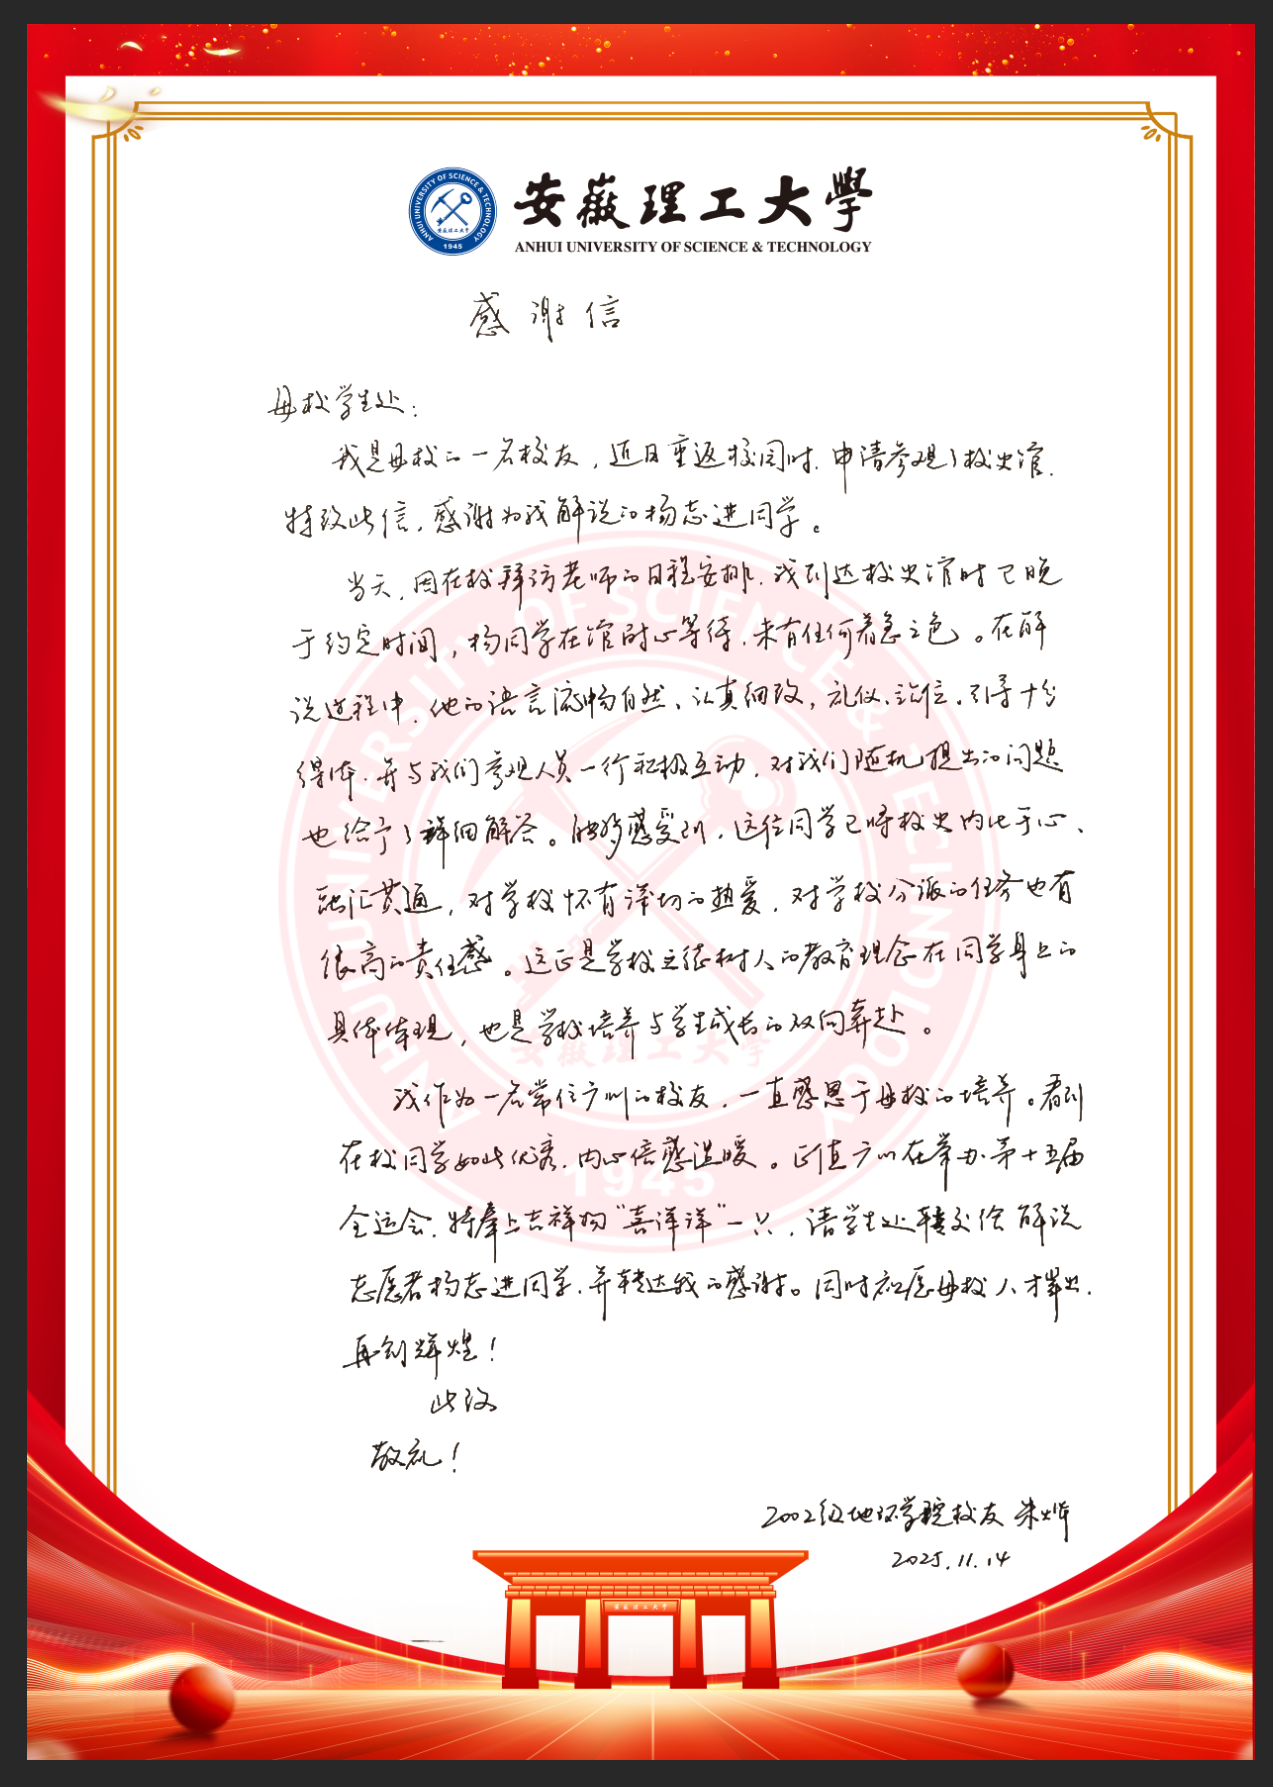 安徽理工大學
ANHUI UNIVERSITY OF SCIENCE & TECHNOLOGY
ANHUI UNIVERSITY OF SCIENCE & TECHNOLOGY
安徽理工大学
1945
感谢信
母校学生处：
我是母校的一名校友，近日重返校园时，申请参观了校史馆，
特致此信，感谢为我解说的杨志进同学。
当天，因在校拜访老师的日程安排，我到达校史馆时已晚
于约定时间，杨同学在馆耐心等待，未有任何着急之色。在解
说过程中，他的语言流畅自然、认真细致，礼仪、站位、引导十分
得体，并与我们参观人员一行积极互动，对我们随机提出的问题
也给予了详细解答。能够感受到，这位同学已将校史内化于心、
融汇贯通，对学校怀有深切的热爱，对学校分派的任务也有
很高的责任感。这正是学校立德树人的教育理念在同学身上的
具体体现，也是学校培养与学生成长的双向奔赴。
我作为一名常住广州的校友，一直感恩于母校的培养。看到
在校同学如此优秀，内心倍感温暖。正值广州在举办第十五届
全运会，特奉上吉祥物“喜洋洋”一只，请学生处转交给解说
志愿者杨志进同学，并转达我的感谢。同时祝愿母校人才辈出，
再创辉煌！
此致
敬礼！
2002级地环学院校友 朱烨
2025.11.14
ANHUI UNIVERSITY OF SCIENCE & TECHNOLOGY
安徽理工大學
1945
安徽理工大學